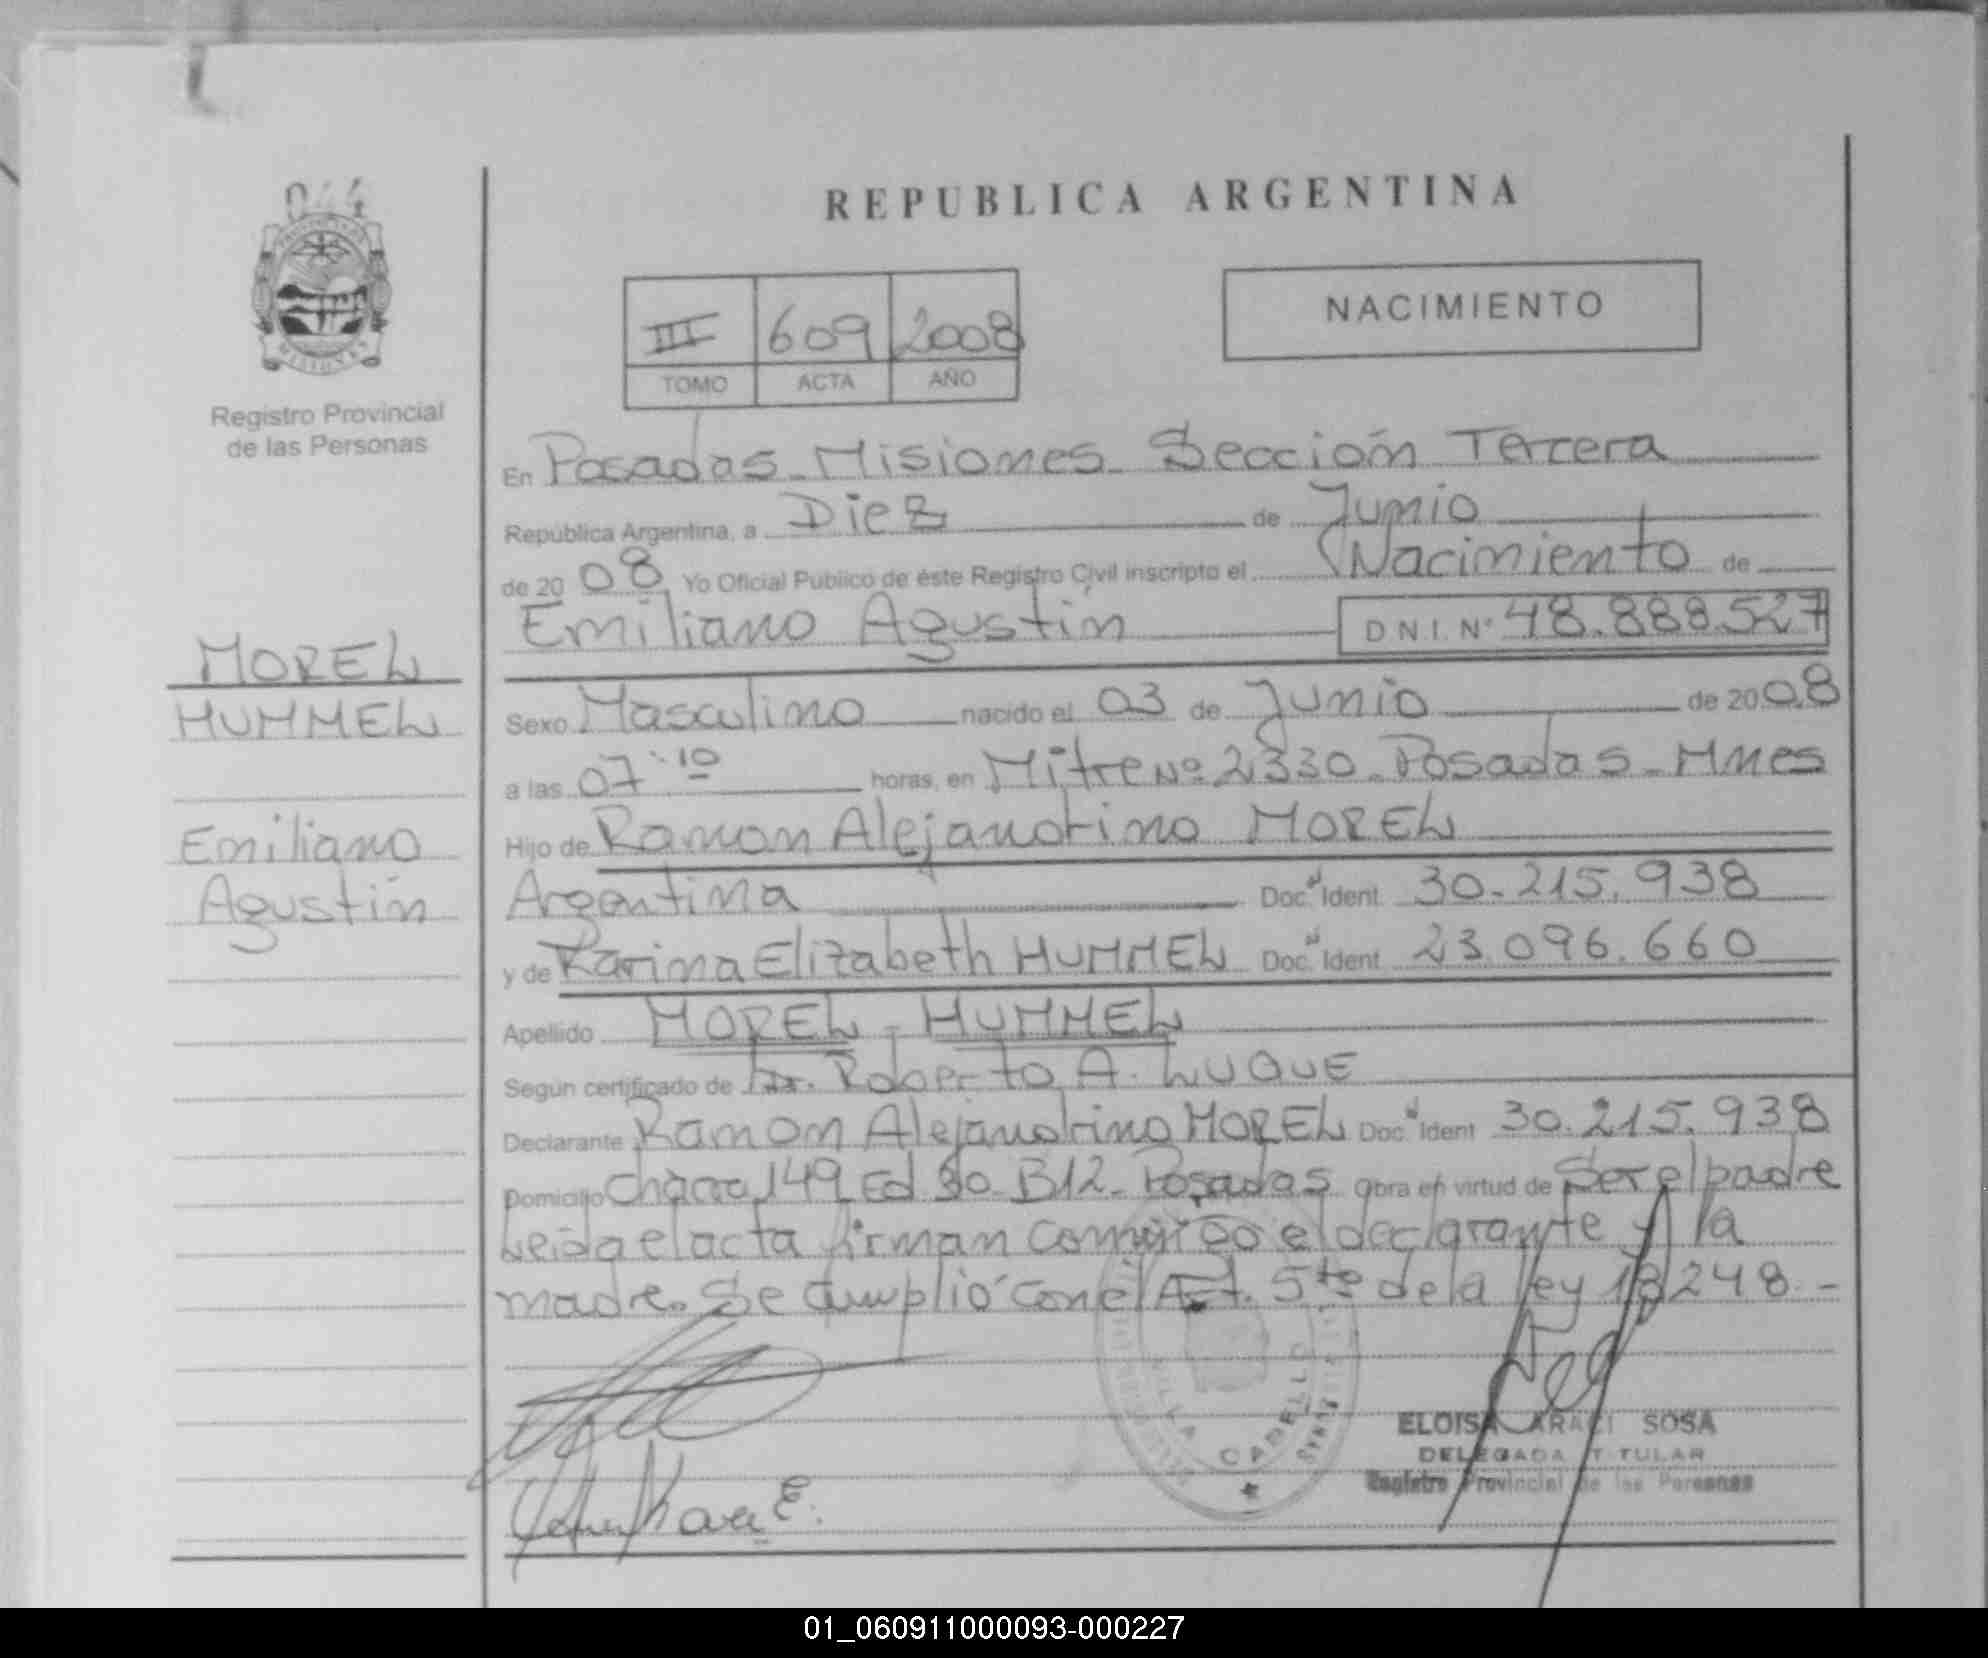 044
PROVINCIA DE
MISIONES
Registro Provincial
de las Personas
MOREL
HUMMEL
Emiliano
Agustín
REPUBLICA ARGENTINA
III 609 2008
TOMO ACTA AÑO
NACIMIENTO
En Posadas - Misiones - Sección Tercera
República Argentina, a Diez de Junio
de 2008 Yo Oficial Público de éste Registro Civil inscripto el Nacimiento de
Emiliano Agustín D.N.I. Nº 48.888.527
Sexo Masculino nacido el 03 de Junio de 2008
a las 07:10 horas, en Mitre Nº 2330 - Posadas - Mnes
Hijo de Ramon Alejandrino MOREL
Argentina Doc. Ident 30.215.938
y de Karina Elizabeth HUMMEL Doc. Ident 23.096.660
Apellido MOREL - HUMMEL
Según certificado de Dr. Roberto A. LUQUE
Declarante Ramon Alejandrino MOREL Doc. Ident 30.215.938
Domicilio Chacra 149 Ed 30 - B12 - Posadas obra en virtud de Ser el padre
Leída el acta firman conmigo el declarante y la
madre. Se cumplió con el Art. 5to de la ley 18248.-
CABELLO
ELOISA ARACI SOSA
DELEGADA TITULAR
Registro Provincial de las Personas
01_060911000093-000227